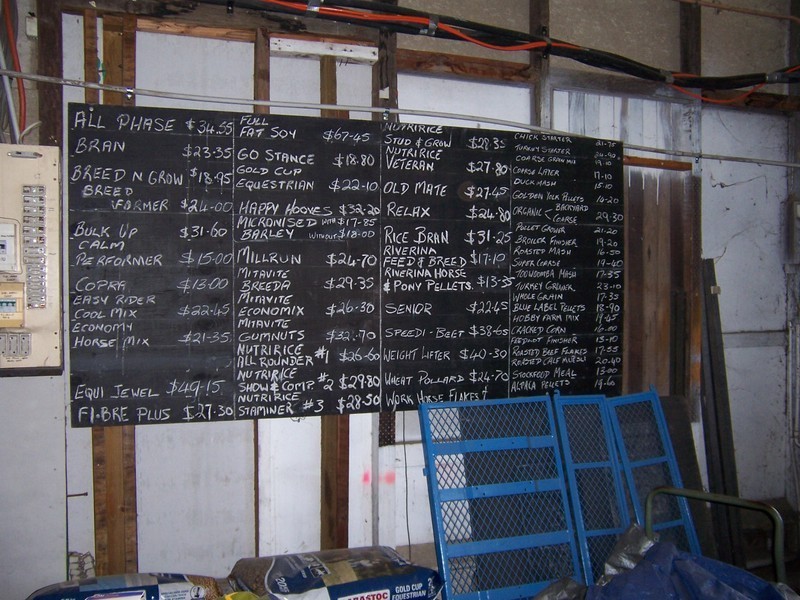 ALL PHASE $34.55
BRAN $23.35
BREED N GROW $18.95
BREED
FORMER $24.00
BULK UP $31.60
CALM
PERFORMER $15.00
COPRA $13.00
EASY RIDER
COOL MIX $22.45
ECONOMY
HORSE MIX $21.35
EQUI JEWEL $49.15
FI.BRE PLUS $27.30
FULL
FAT SOY $67.45
GO STANCE $18.80
GOLD CUP
EQUESTRIAN $22.10
HAPPY HOOVES $32.20
MICRONISED WITH $17.85
BARLEY WITHOUT $18.00
MILLRUN $24.70
MITAVITE
BREEDA $29.35
MITAVITE
ECONOMIX $26.30
MITAVITE
GUMNUTS $32.70
NUTRIRICE
ALL ROUNDER #1 $26.60
NUTRIRICE
SHOW & COMP. #2 $29.80
NUTRIRICE
STAMINER #3 $28.50
NUTRIRICE
STUD & GROW $28.35
NUTRIRICE
VETERAN $27.80
OLD MATE $27.45
RELAX $24.80
RICE BRAN $31.25
RIVERINA
FEED & BREED $17.10
RIVERINA HORSE
& PONY PELLETS $13.35
SENIOR $22.45
SPEEDI-BEET $38.65
WEIGHT LIFTER $40.30
WHEAT POLLARD $24.70
WORK HORSE FLAKES
CHICK STARTER 21.75
TURKEY STARTER
COARSE GROW MIX 19.10
COARSE LAYER 17.10
DUCK MASH 15.10
GOLDEN YOLK PELLETS 14.20
ORGANIC BACKYARD
COARSE 29.30
PULLET GROWER 21.20
BROILER FINISHER 19.20
ROASTED MASH 16.50
SUPER COARSE 19.40
TOOWOOMBA MASH 17.35
TURKEY GROWER 23.10
WHOLE GRAIN 17.35
BLUE LABEL PELLETS 18.90
HOBBY FARM MIX 19.65
CRACKED CORN 16.00
FEEDLOT FINISHER 15.10
ROASTED BEEF FLAKES 17.55
ROASTED CALF MUESLI 20.40
STOCKFEED MEAL 13.00
ALPACA PELLETS 19.60
GOLD CUP
EQUESTRIAN